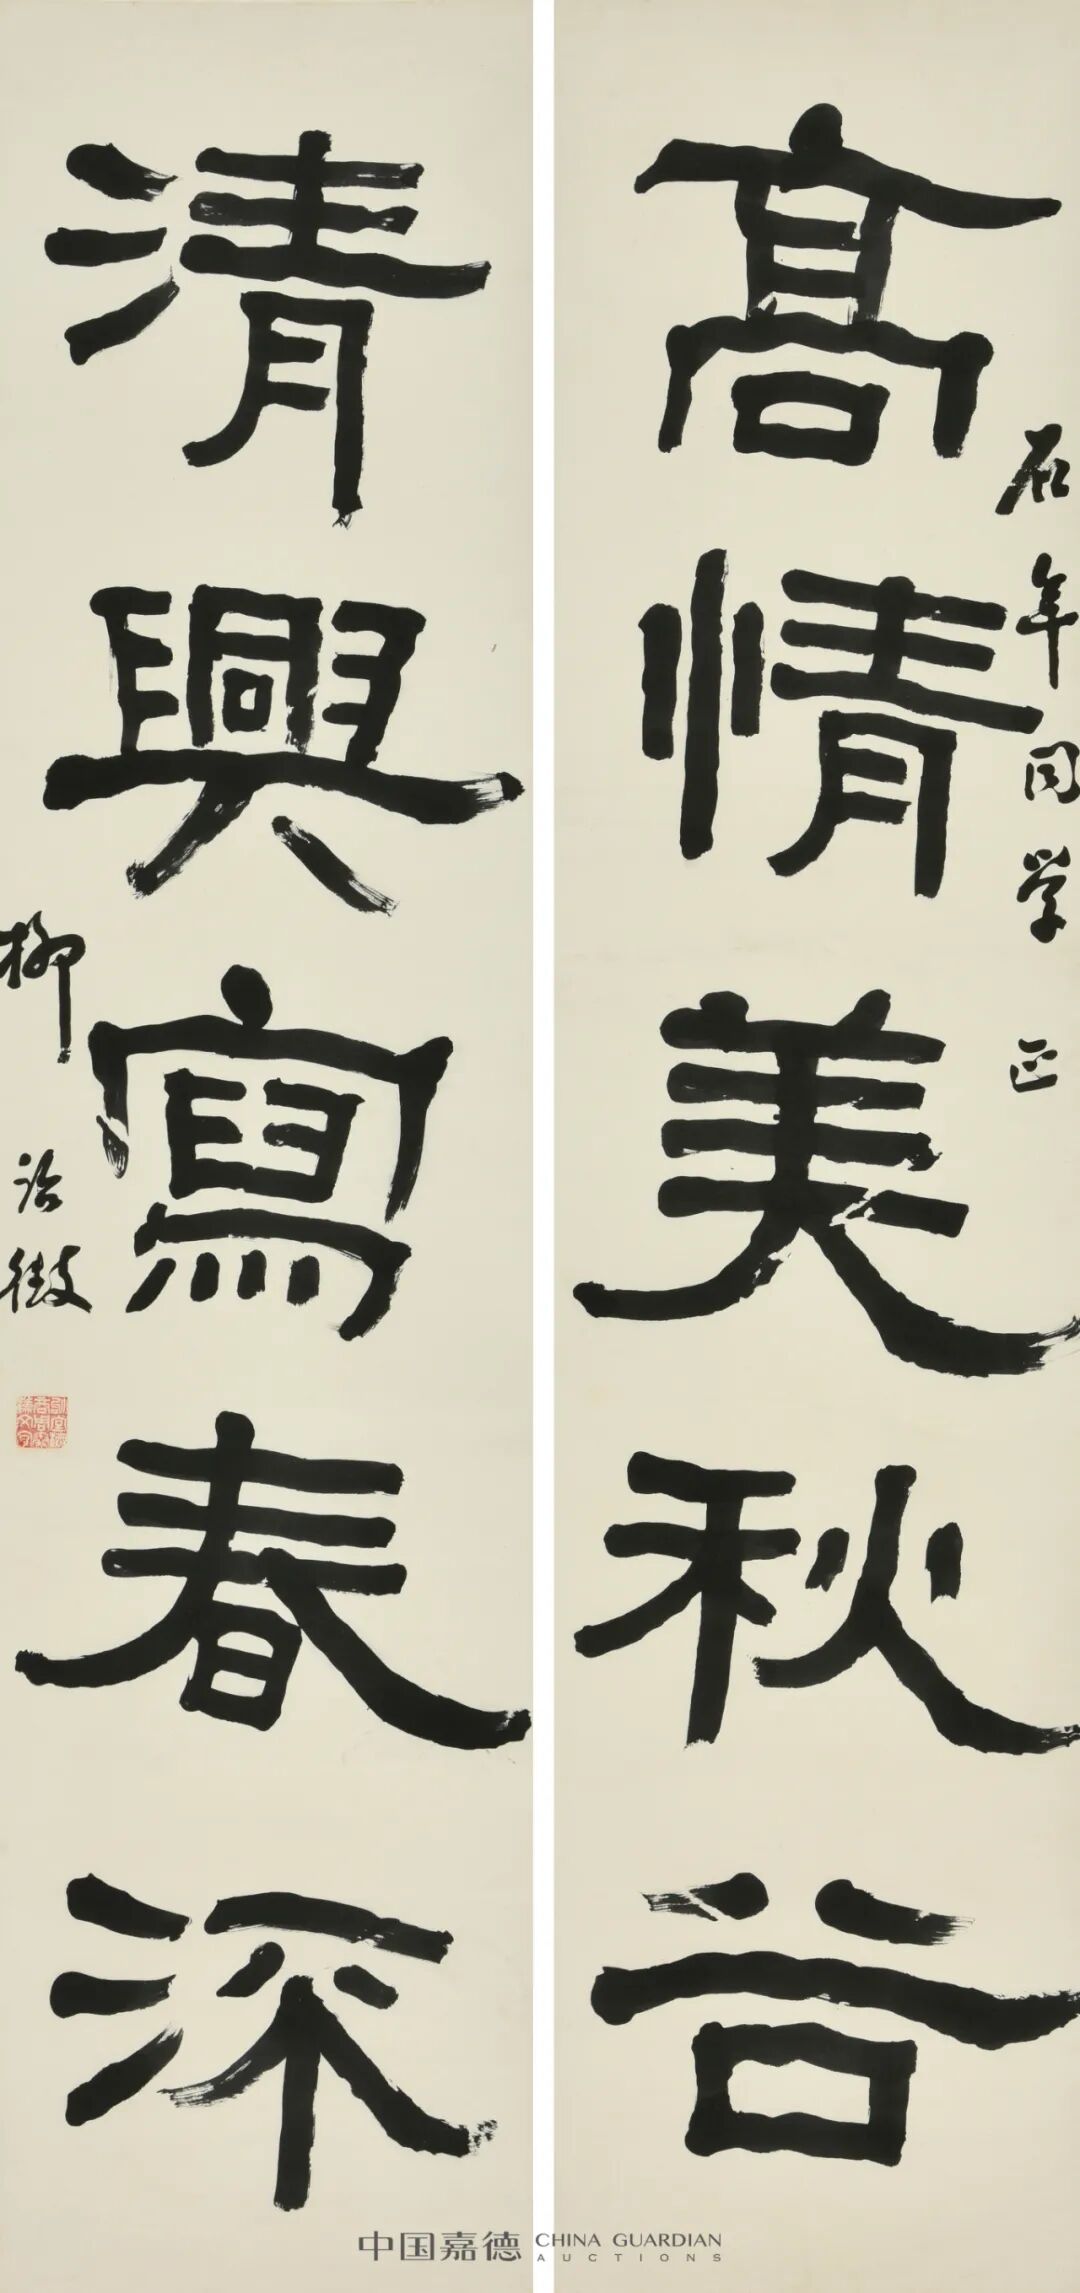 石年同学正
髙情美秋谷
清興寫春深
柳诒徵
中国嘉德 CHINA GUARDIAN
AUCTIONS